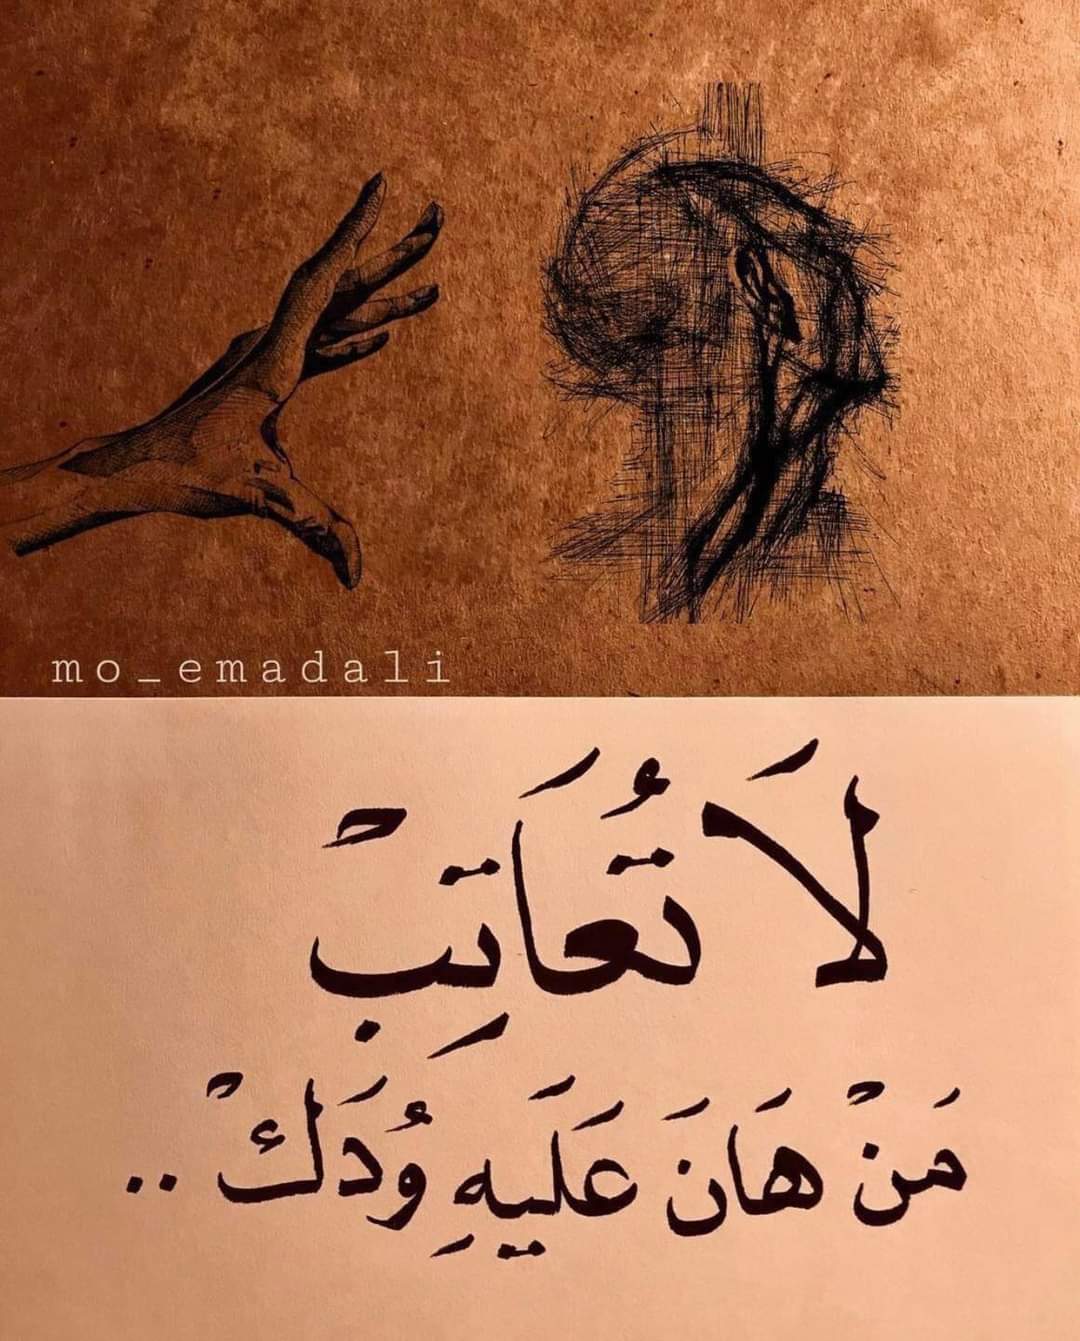 mo_emadali
لَا تُعَاتِبْ
مَنْ هَانَ عَلَيهِ وُدَكْ ..